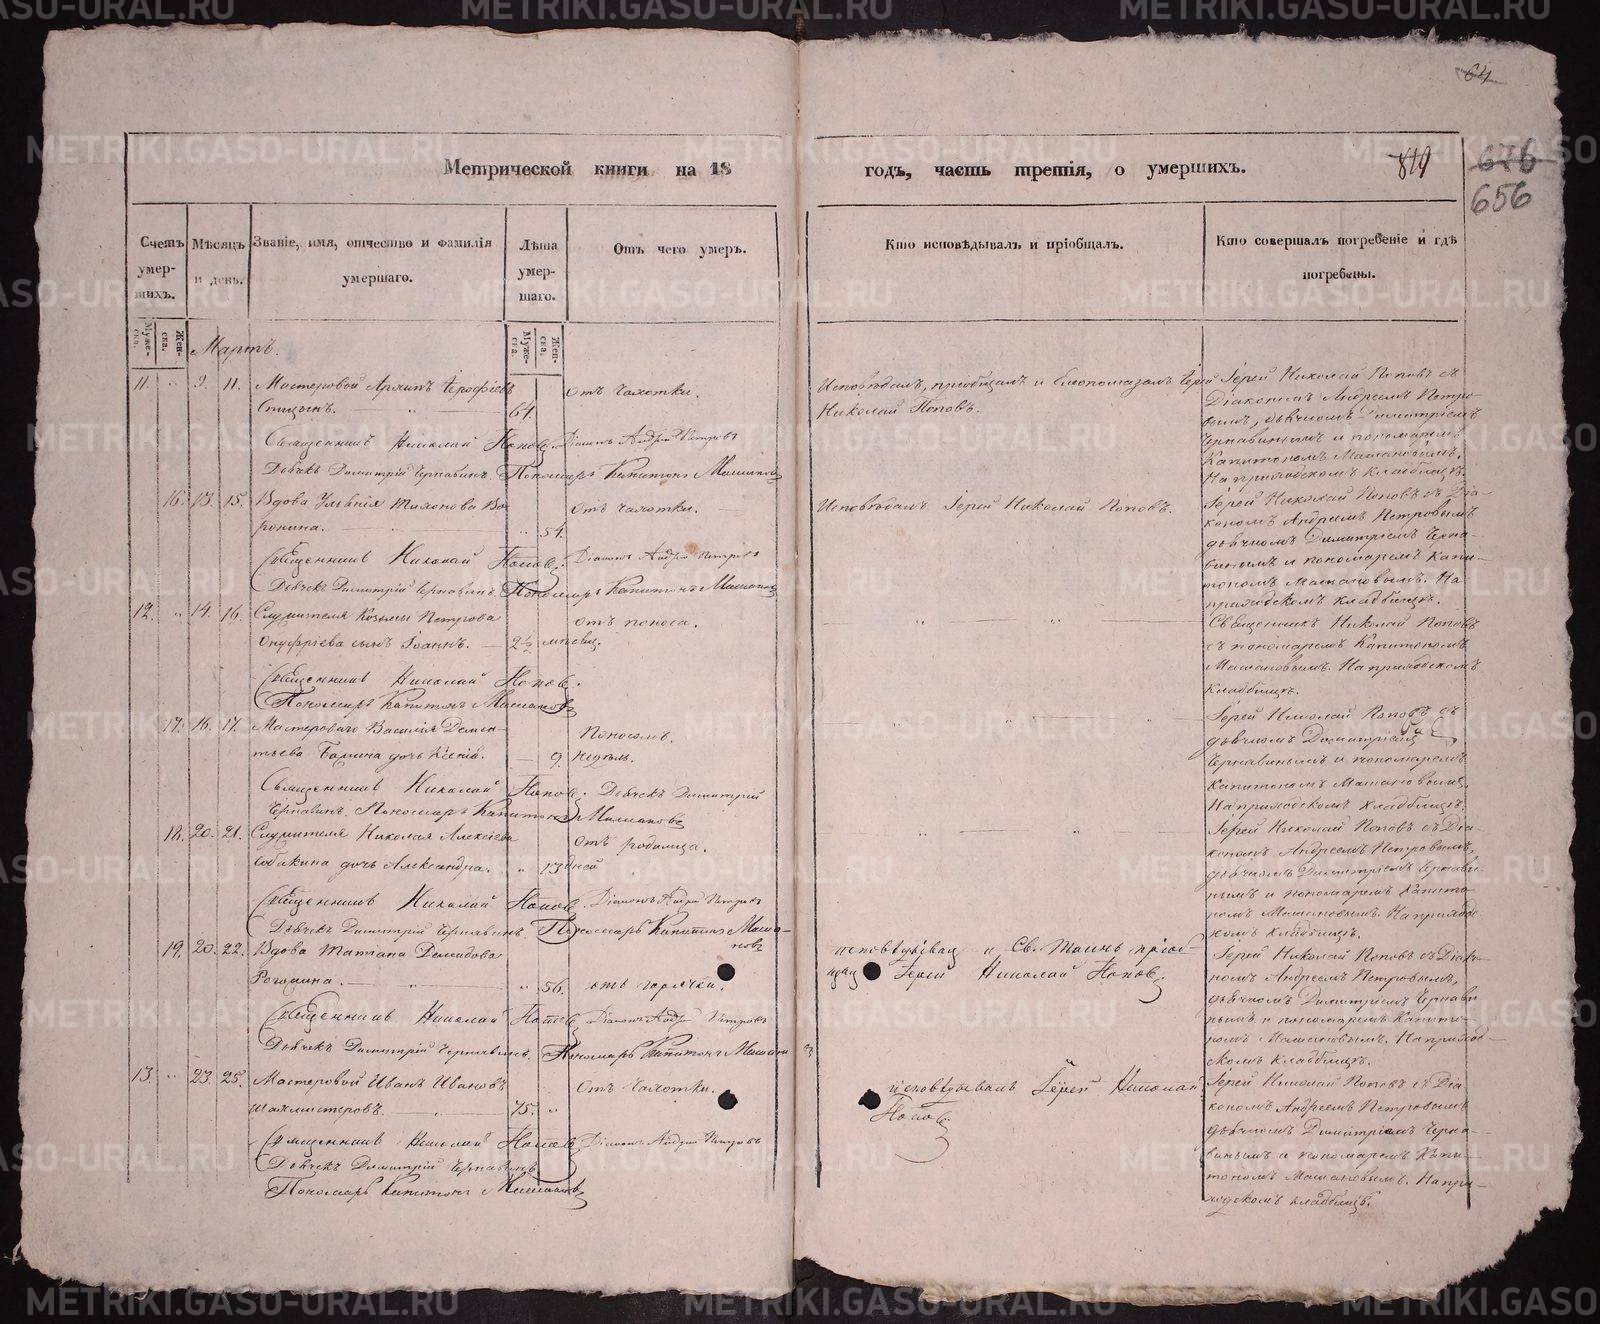 64
Метрической книги на 18 годъ, часть третія, о умершихъ.
819
676
656
Счетъ умер-шихъ.
Мѣсяцъ и день.
Званіе, имя, отчество и фамилія умершаго.
Лѣта умер-шаго.
Отъ чего умеръ.
Кто исповѣдывалъ и пріобщалъ.
Кто совершалъ погребеніе и гдѣ погребены.
Муже-ска.
Жен-ска.
Муже-ска.
Жен-ска.
Мартъ.
11. " 9. 11. Мастеровой Архипъ Ерофѣевъ
Спицынъ. 64.
отъ чахотки.
Исповѣдалъ, пріобщалъ и
Николай Поповъ.
Іерей Николай Поповъ съ
Діакономъ Андреемъ Петро-
вымъ, дьячкомъ Димитріемъ
Чернавинымъ и пономаремъ
Капитономъ Машановымъ.
На приходскомъ кладбищѣ.
Священникъ Николай Поповъ. Діаконъ Андрей Петровъ
Дьячекъ Димитрій Чернавинъ. Пономарь Капитонъ Машановъ
16. 13. 15. Вдова Ульянія Тихонова Во-
ронина. " 54.
отъ чахотки.
Исповѣдалъ Іерей Николай Поповъ.
Іерей Николай Поповъ съ Діа-
кономъ Андреемъ Петровымъ
дьячкомъ Димитріемъ Черна-
винымъ и пономаремъ Капи-
тономъ Машановымъ. На
приходскомъ кладбищѣ.
Священникъ Николай Поповъ. Діаконъ Андрей Петровъ
Дьячекъ Димитрій Чернавинъ. Пономарь Капитонъ Машановъ
12. " 14. 16. Служителя Козьмы Петрова
Онуфріева сынъ Іоаннъ. 2½ мѣсяц.
отъ поноса.
Священникъ Николай Поповъ
съ пономаремъ Капитономъ
Машановымъ. На приходскомъ
кладбищѣ.
Священникъ Николай Поповъ.
Пономарь Капитонъ Машановъ
17. 16. 17. Мастероваго Василія Демен-
тьева дочь Ксенія. 9. недѣль.
Поносомъ.
Іерей Николай Поповъ съ
дьячкомъ Димитріемъ
Чернавинымъ и пономаремъ
Капитономъ Машановымъ.
На приходскомъ кладбищѣ.
Священникъ Николай Поповъ. Дьячекъ Димитрій
Чернавинъ. Пономарь Капитонъ Машановъ
18. 20. 21. Служителя Николая Алексѣева
Собакина дочь Александра. " 13 дней
отъ родимца.
Іерей Николай Поповъ съ Діа-
кономъ Андреемъ Петровымъ,
дьячкомъ Димитріемъ Чернави-
нымъ и пономаремъ Капито-
номъ Машановымъ. На приход-
скомъ кладбищѣ.
Священникъ Николай Поповъ. Діаконъ Андрей Петровъ
Дьячекъ Димитрій Чернавинъ. Пономарь Капитонъ Маша-
новъ
19. 20. 22. Вдова Татіана Демидова
Рогожина. " 56.
отъ горячки.
и Св. Таинъ пріоб-
щалъ Іерей Николай Поповъ.
Іерей Николай Поповъ съ Діако-
номъ Андреемъ Петровымъ,
дьячкомъ Димитріемъ Чернави-
нымъ и пономаремъ Капито-
номъ Машановымъ. На приход-
скомъ кладбищѣ.
Священникъ Николай Поповъ Діаконъ Андрей Петровъ
Дьячекъ Димитрій Чернавинъ. Пономарь Капитонъ Машановъ
13. " 23. 25. Мастеровой Иванъ Ивановъ
Шахмистеровъ. 75. "
отъ чахотки.
исповѣдывалъ Іерей Николай
Поповъ
Іерей Николай Поповъ съ Діа-
кономъ Андреемъ Петровымъ
дьячкомъ Димитріемъ Черна-
винымъ и пономаремъ Капи-
тономъ Машановымъ. На при-
ходскомъ кладбищѣ.
Священникъ Николай Поповъ Діаконъ Андрей Петровъ
Дьячекъ Димитрій Чернавинъ
Пономарь Капитонъ Машановъ
METRIKI.GASO-URAL.RU